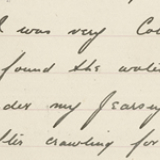 I was very Co
found the wate
der my Jearsey
this crawling for